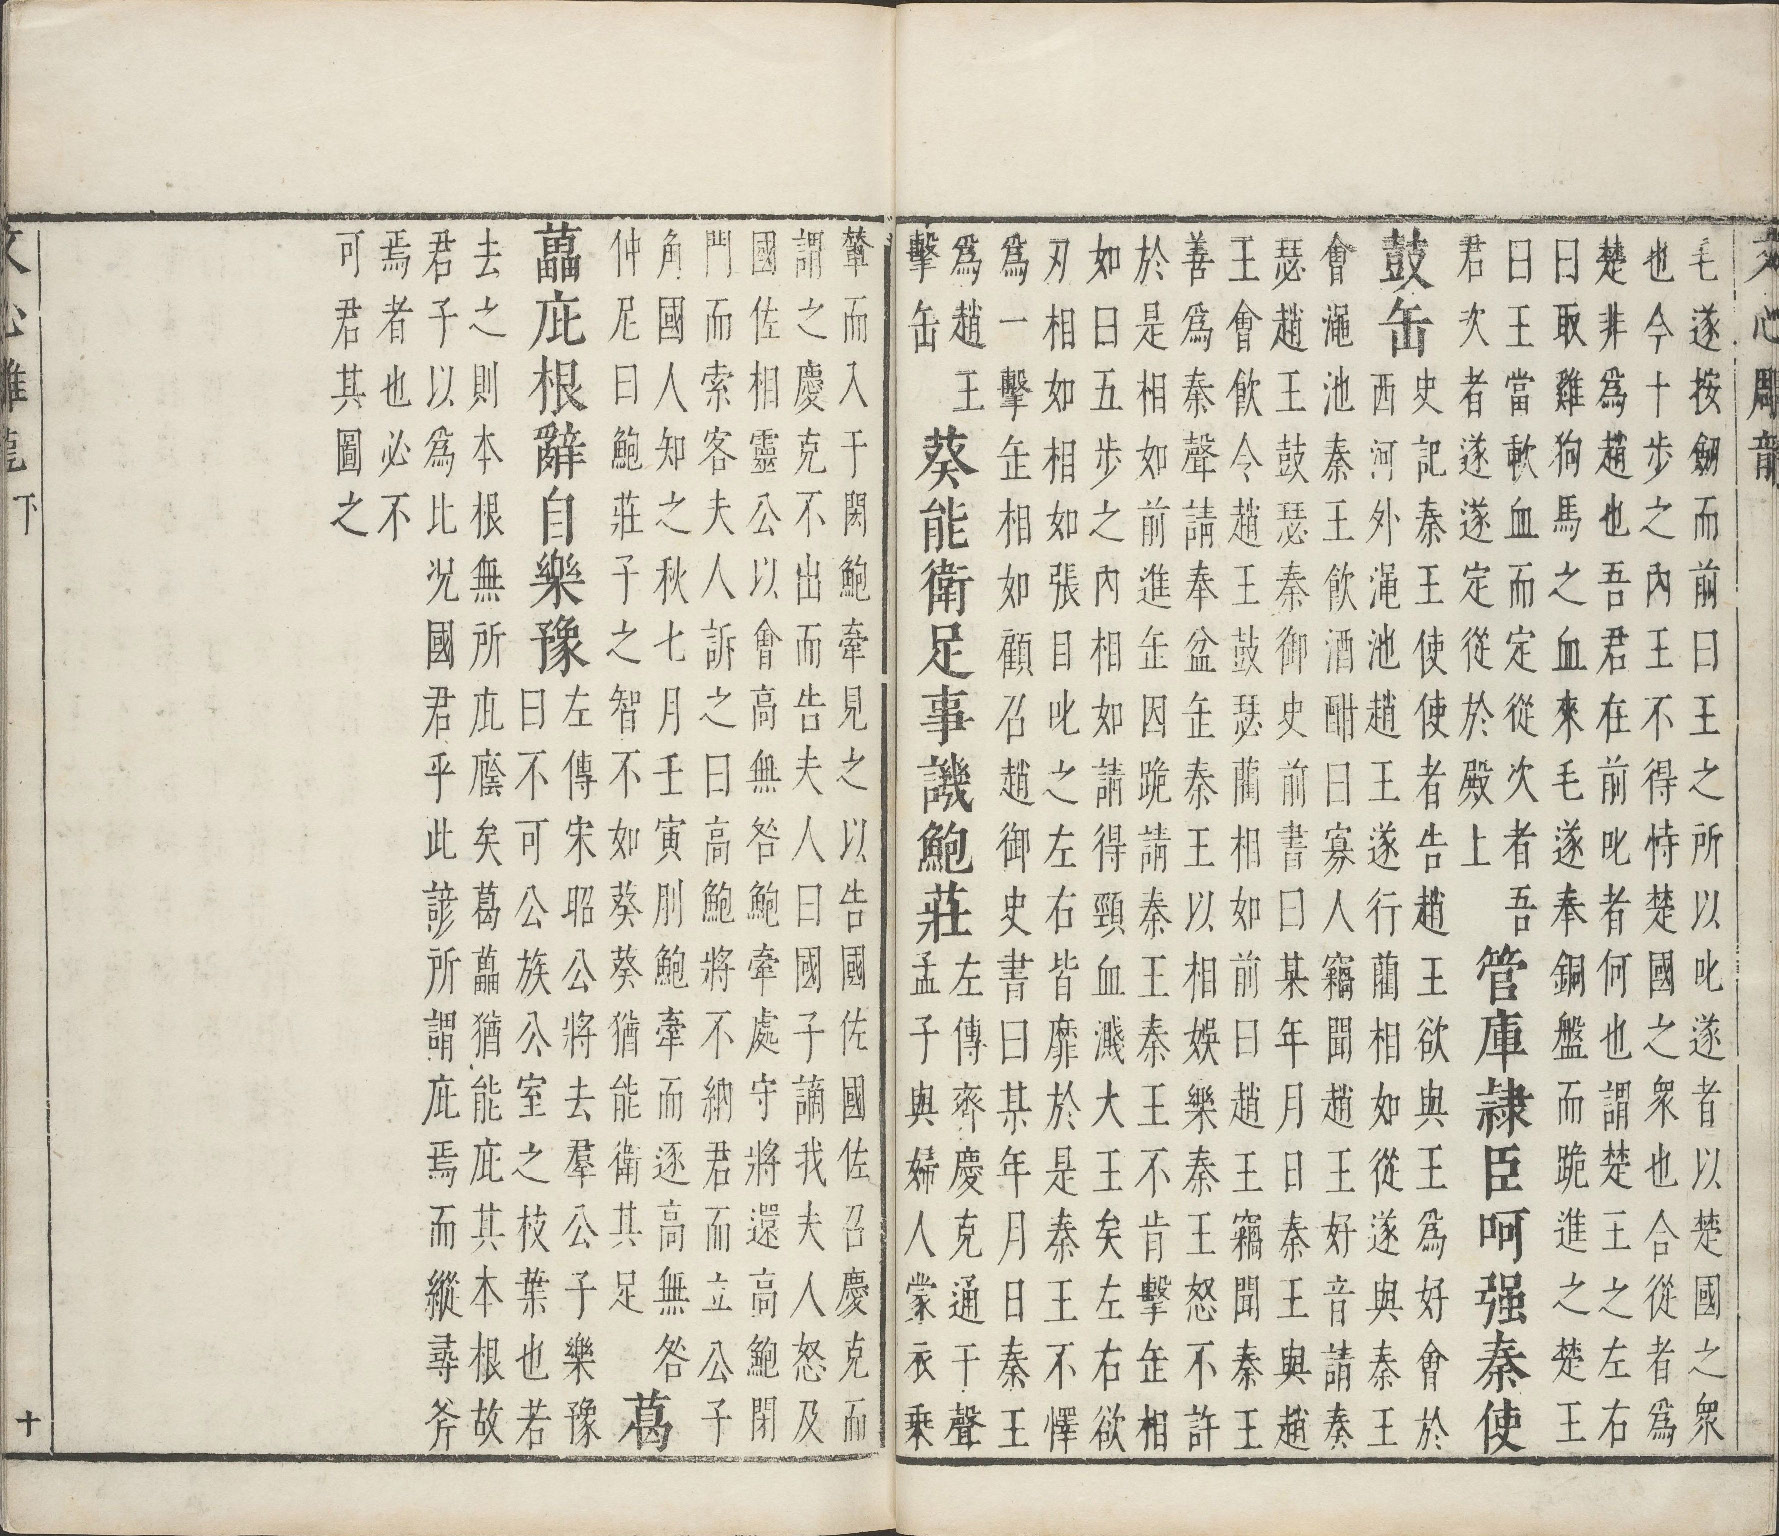 文心雕龍
毛遂按劒而前曰王之所以叱遂者以楚國之衆
也今十步之內王不得恃楚國之衆也合從者爲
楚非爲趙也吾君在前叱者何也謂楚王之左右
曰取雞狗馬之血來毛遂奉銅盤而跪進之楚王
曰王當軟血而定從次者吾
君次者遂遂定從於殿上
管庫隷臣呵强秦使
鼓缶
史記秦王使使者告趙王欲與王爲好會於
西河外澠池趙王遂行藺相如從遂與秦王
會澠池秦王飮酒酣曰寡人竊聞趙王好音請奏
瑟趙王鼓瑟秦御史前書曰某年月日秦王與趙
王會飮令趙王鼓瑟藺相如前曰趙王竊聞秦王
善爲秦聲請奉盆缻秦王以相娛樂秦王怒不許
於是相如前進缻因跪請秦王秦王不肯擊缻相
如曰五步之內相如請得頸血濺大王矣左右欲
刃相如相如張目叱之左右皆靡於是秦王不懌
爲一擊缻相如顧召趙御史書曰某年月日秦王
爲趙王
擊缶
葵能衛足事譏鮑莊
左傳齊慶克通于聲
孟子與婦人蒙衣乘
輦而入于閎鮑牽見之以告國佐國佐召慶克而
謂之慶克不出而告夫人曰國子謫我夫人怒及
國佐相靈公以會高無咎鮑牽處守將還高鮑閉
門而索客夫人訴之曰高鮑將不納君而立公子
角國人知之秋七月壬寅刖鮑牽而逐高無咎
仲尼曰鮑莊子之智不如葵葵猶能衛其足
葛
藟庇根辭自樂豫
左傳宋昭公將去羣公子樂豫
曰不可公族公室之枝葉也若
去之則本根無所庇廕矣葛藟猶能庇其本根故
君子以爲比况國君乎此諺所謂庇焉而縱尋斧
焉者也必不
可君其圖之
文心雕龍下
十